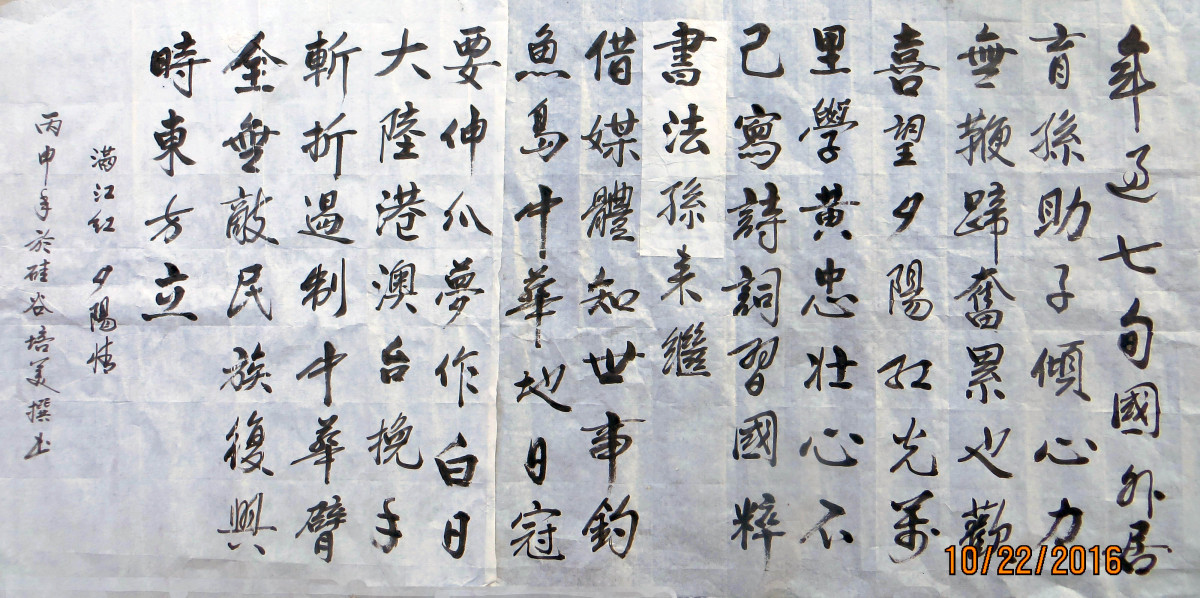 年過七旬國外居
育孫助子傾心力
無鞭蹄奮累也歡
喜望夕陽紅光萬
里學黃忠壯心不
已寫詩詞習國粹
書法孫来繼
借媒體知世事釣
魚島中華地日寇
要伸爪夢作白日
大陸港澳台挽手
斬折遏制中華臂
全無敵民族復興
時東方立
滿江紅 夕陽情
丙申年於硅谷培美撰书
10/22/2016